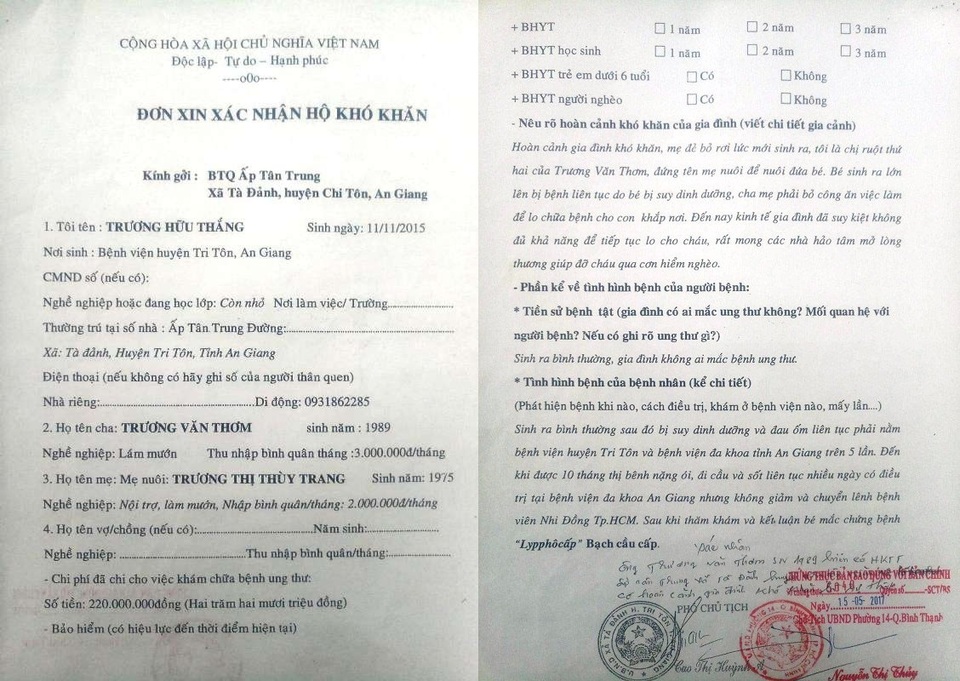 CỘNG HÒA XÃ HỘI CHỦ NGHĨA VIỆT NAM
Độc lập- Tự do – Hạnh phúc
----o0o----
ĐƠN XIN XÁC NHẬN HỘ KHÓ KHĂN
Kính gởi : BTQ Ấp Tân Trung
Xã Tà Đảnh, huyện Chi Tôn, An Giang
1. Tôi tên : TRƯƠNG HỮU THẮNG Sinh ngày: 11/11/2015
Nơi sinh : Bệnh viện huyện Tri Tôn, An Giang
CMND số (nếu có):
Nghề nghiệp hoặc đang học lớp: Còn nhỏ Nơi làm việc/ Trường....................
Thường trú tại số nhà : Ấp Tân Trung Đường:....................
Xã: Tà đảnh, Huyện Tri Tôn, Tỉnh An Giang
Điện thoại (nếu không có hãy ghi số của người thân quen)
Nhà riêng:....................Di động: 0931862285
2. Họ tên cha: TRƯƠNG VĂN THƠM sinh năm : 1989
Nghề nghiệp: Lám mướn Thu nhập bình quân tháng :3.000.000đ/tháng
3. Họ tên mẹ: Mẹ nuôi: TRƯƠNG THỊ THÙY TRANG Sinh năm: 1975
Nghề nghiệp: Nội trợ, làm mướn, Nhập bình quân/tháng: 2.000.000đ/tháng
4. Họ tên vợ/chồng (nếu có):....................Năm sinh:....................
Nghề nghiệp: ....................Thu nhập bình quân/tháng:....................
- Chi phí đã chi cho việc khám chữa bệnh ung thư:
Số tiền: 220.000.000đồng (Hai trăm hai mươi triệu đồng)
- Bảo hiểm (có hiệu lực đến thời điểm hiện tại)
+ BHYT □ 1 năm □ 2 năm □ 3 năm
+ BHYT học sinh □ 1 năm □ 2 năm □ 3 năm
+ BHYT trẻ em dưới 6 tuổi □ Có □ Không
+ BHYT người nghèo □ Có □ Không
- Nêu rõ hoàn cảnh khó khăn của gia đình (viết chi tiết gia cảnh)
Hoàn cảnh gia đình khó khăn, mẹ đẻ bỏ rơi lức mới sinh ra, tôi là chị ruột thứ
hai của Trương Văn Thơm, đứng tên mẹ nuôi để nuôi đứa bé. Bé sinh ra lớn
lên bị bệnh liên tục do bé bị suy dinh dưỡng, cha mẹ phải bỏ công ăn việc làm
để lo chữa bệnh cho con khắp nơi. Đến nay kinh tế gia đình đã suy kiệt không
đủ khả năng để tiếp tục lo cho cháu, rất mong các nhà hảo tâm mở lòng
thương giúp đỡ cháu qua cơn hiểm nghèo.
- Phần kể về tình hình bệnh của người bệnh:
* Tiền sử bệnh tật (gia đình có ai mắc ung thư không? Mối quan hệ với
người bệnh? Nếu có ghi rõ ung thư gì?)
Sinh ra bình thường, gia đình không ai mắc bệnh ung thư.
* Tình hình bệnh của bệnh nhân (kể chi tiết)
(Phát hiện bệnh khi nào, cách điều trị, khám ở bệnh viện nào, mấy lần....)
Sinh ra bình thường sau đó bị suy dinh dưỡng và đau ốm liên tục phải nằm
bệnh viện huyện Tri Tôn và bệnh viện đa khoa tỉnh An Giang trên 5 lần. Đến
khi được 10 tháng thì bênh nặng ói, đi cầu và sốt liên tục nhiều ngày có điều
trị tại bệnh viện đa khoa An Giang nhưng không giảm và chuyển lênh bệnh
viên Nhi Đồng Tp.HCM. Sau khi thăm khám và kết luận bé mắc chứng bệnh
"Lypphôcấp" Bạch cầu cấp.
Xác nhận
ông Trương văn Thơm SN 1989 hiện có HKTT
PHÓ CHỦ TỊCH
Cao Thị Huỳnh
CHỨNG THỰC BẢN SAO ĐÚNG VỚI BẢN CHÍNH
-SCT/BS
Ngày 15-05-2017
Chủ Tịch UBND Phường 14-Q.Bình Thạnh
Nguyễn Thị Thủy